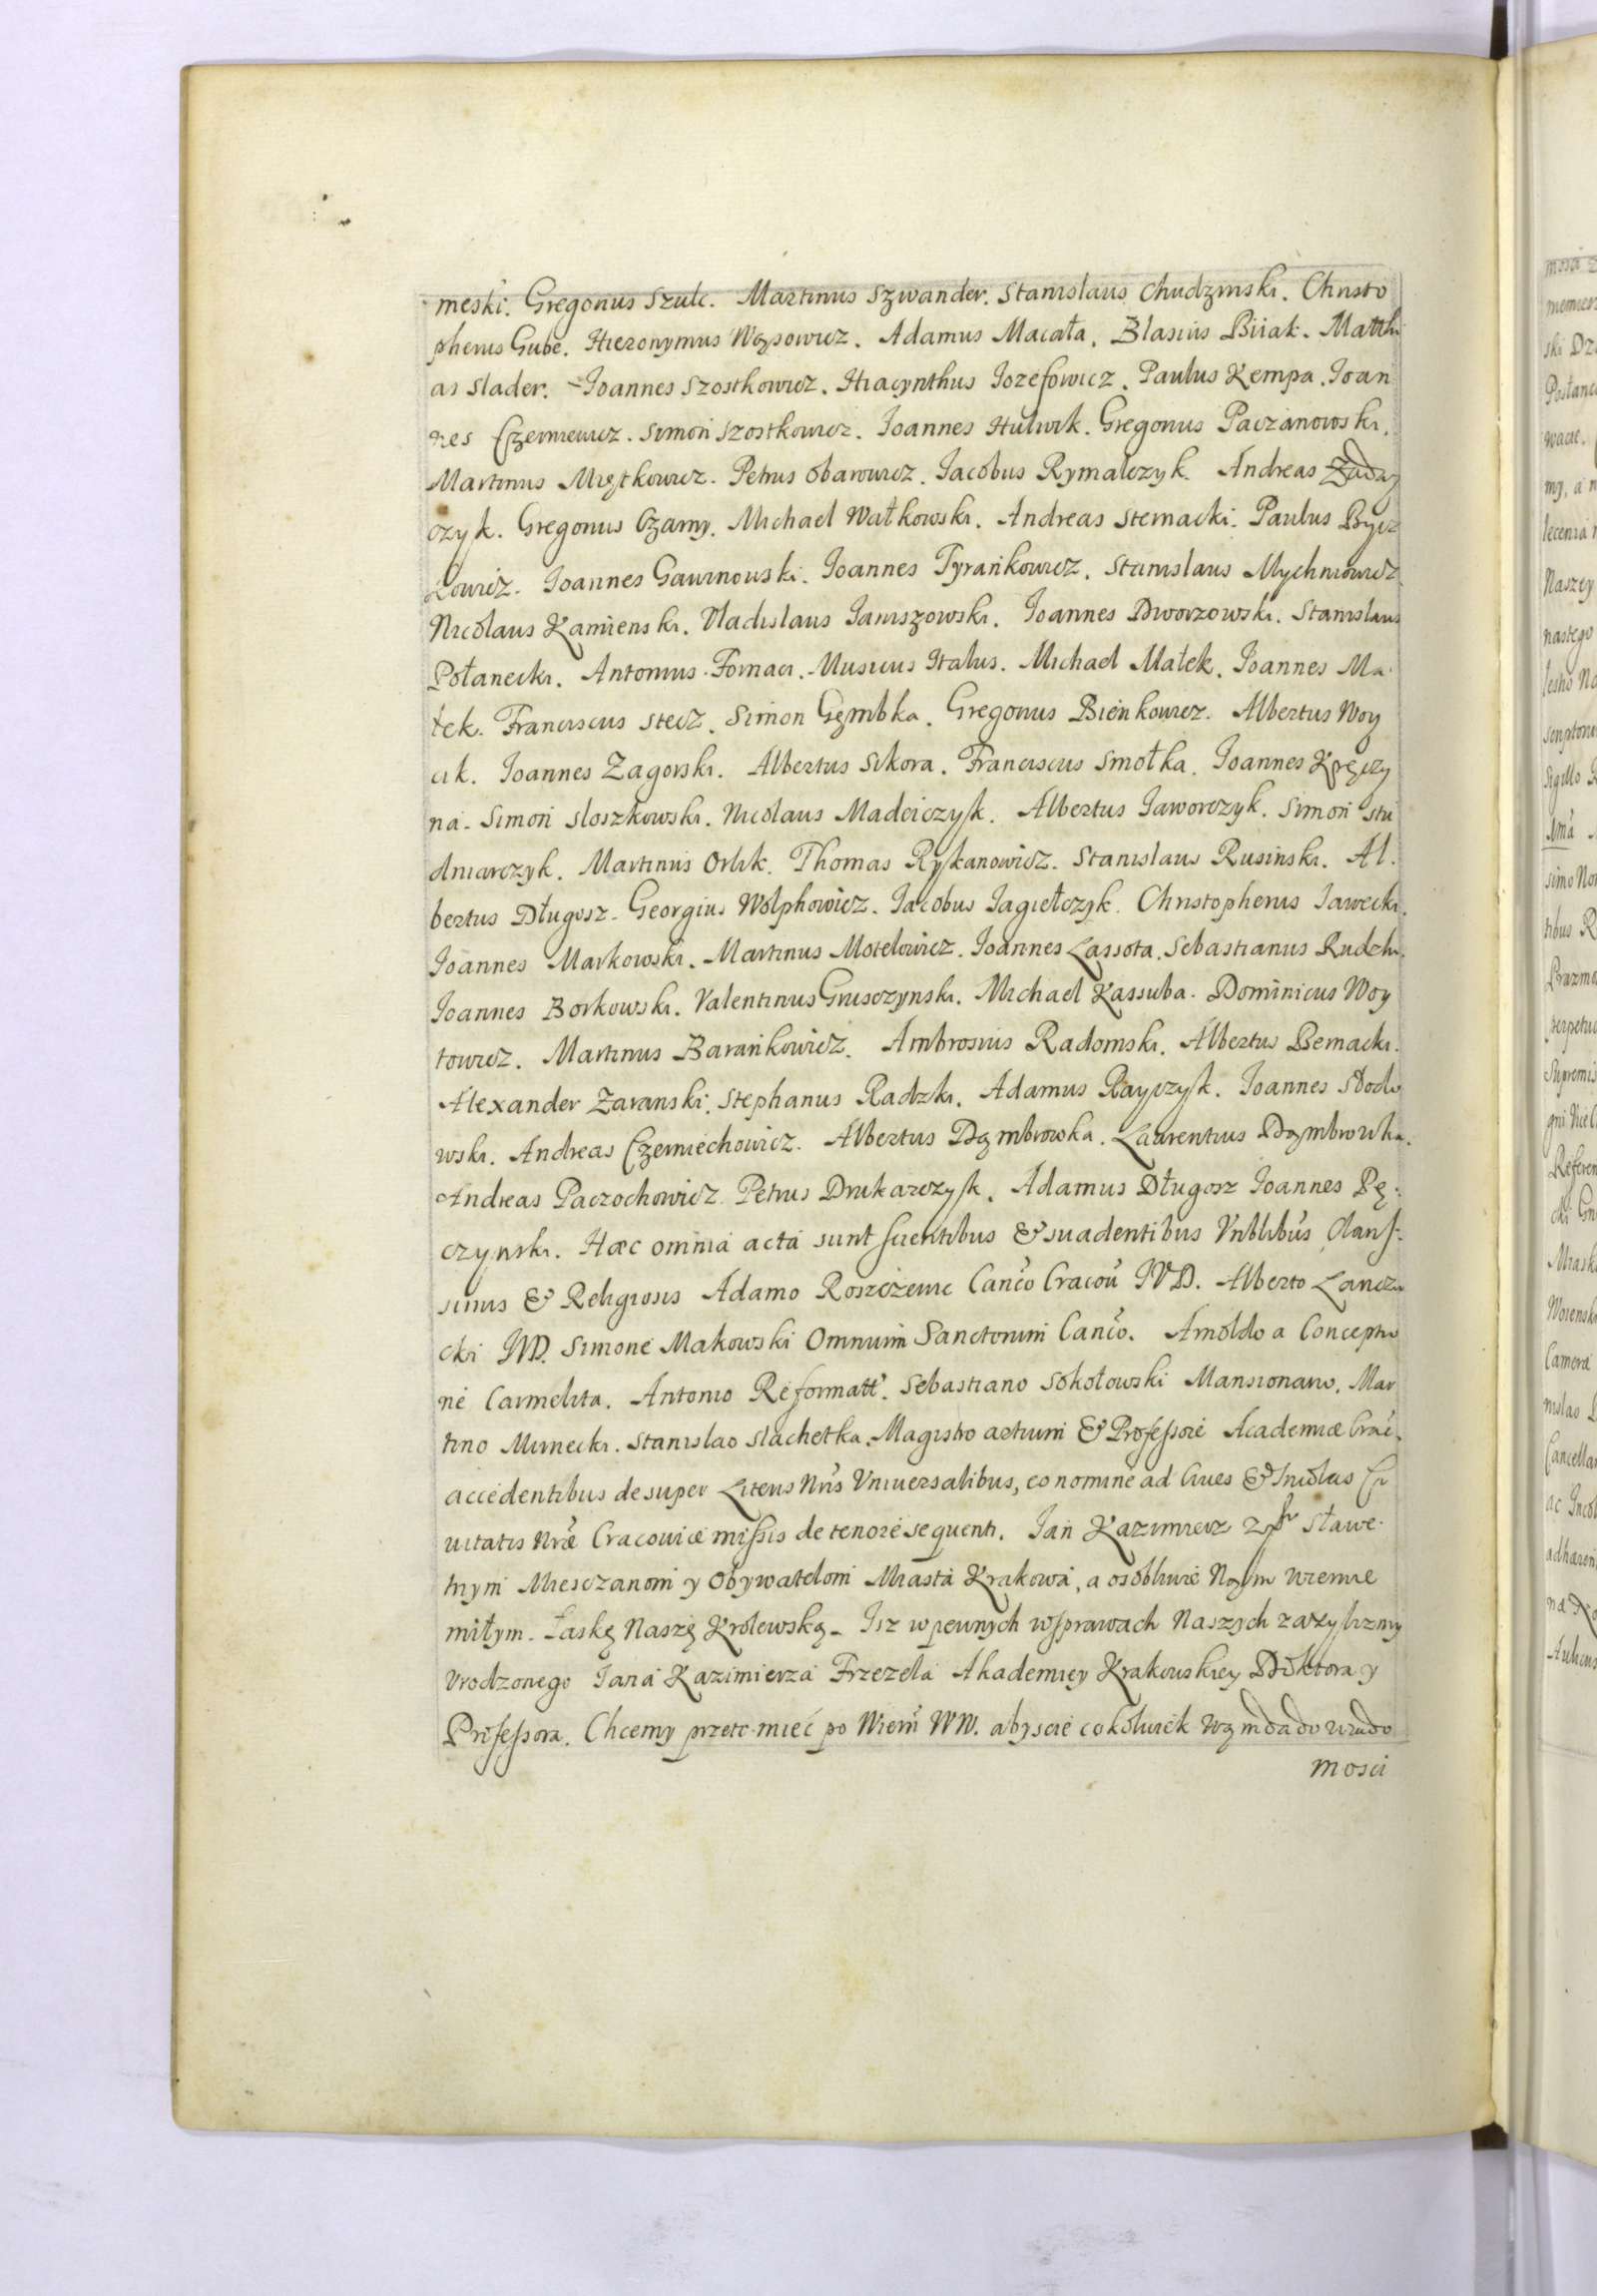 meski. Gregorius Szulc. Martinus Szwander. Stanislaus Chudzinski. Christo
pherus Gube. Hieronymus Wąsowicz. Adamus Macała. Blasius Biiak. Matthi
as Slader. Joannes Szostkowicz. Hiacynthus Jozefowicz. Paulus Kempa. Joan
nes Czerniewicz. Simon Szostkowicz. Joannes Hulwik. Gregorius Paczanowski.
Martinus Miętkowicz. Petrus Obarowicz. Jacobus Rymalczyk. Andreas
czyk. Gregorius Czarny. Michael Wałkowski. Andreas Sternacki. Paulus Bycz
kowicz. Joannes Gawinowski. Joannes Tyrańkowicz. Stanislaus Mychniowicz
Nicolaus Kamienski. Vladislaus Januszowski. Joannes Dworzowski. Stanislaus
Połanecki. Antonius Fornaci. Musicus Italus. Michael Małek. Joannes Ma
łek. Franciscus Stecz. Simon Gęmbka. Gregorius Bieńkowicz. Albertus Woy
cik. Joannes Zagorski. Albertus Sikora. Franciscus Smołka. Joannes Kręczy
na. Simon Sloszkowski. Nicolaus Madeiczyk. Albertus Jaworczyk. Simon Stu
dniarczyk. Martinus Orlik. Thomas Rykanowicz. Stanislaus Rusinski. Al.
bertus Długosz. Georgius Wolphowicz. Jacobus Jagiełczyk. Christopherus Jawecki.
Joannes Markowski. Martinus Motelowicz. Joannes Lassota. Sebastianus Rudzki.
Joannes Borkowski. Valentinus Grusczynski. Michael Kassuba. Dominicus Woy
towicz. Martinus Barańkowicz. Ambrosius Radomski. Albertus Bernacki.
Alexander Zaranski. Stephanus Radzki. Adamus Rayczyk. Joannes Słodo
wski. Andreas Czerniechowicz. Albertus Dąmbrowka. Laurentius Dąmbrowka.
Andreas Paczochowicz Petrus Drukarczyk. Adamus Długosz Joannes Pę:
czynski. Hæc omnia acta sunt scientibus & suadentibus Vnblibus Clariss:
simis & Religiosis Adamo Rosciżewic Canco Cracou IVD. Alberto Lanczu
cki IVD. Simone Makowski Omnium Sanctorum Canco. Arnoldo a Conceptio
ne Carmelita. Antonio Reformatt. Sebastiano Sokołowski Mansionario. Mar
tino Miinecki. Stanislao Slachetka. Magistro artium & Professore Academiæ Crac.
accedentibus desuper Literis Nris Vniuersalibus, eo nomine ad Ciues & Incolas Ci
uitatis Nræ Cracoviæ missis de tenore sequenti. Jan Kazimierz zc. Sławe
tnym Miesczanom y Obywatelom Miasta Krakowa, a osobliwie Nąm wiernie
miłym. Łaskę Naszę Krolewską. Isz w pewnych wsprawach Naszych zazylizmy
Vrodzonego Jana Kazimierza Frzezela Akademiey Krakowskiey Doktora y
Professora. Chcemy przeto mieć po Wiern WW. abyscie cokolwiek Wąm da do wiado
mosci